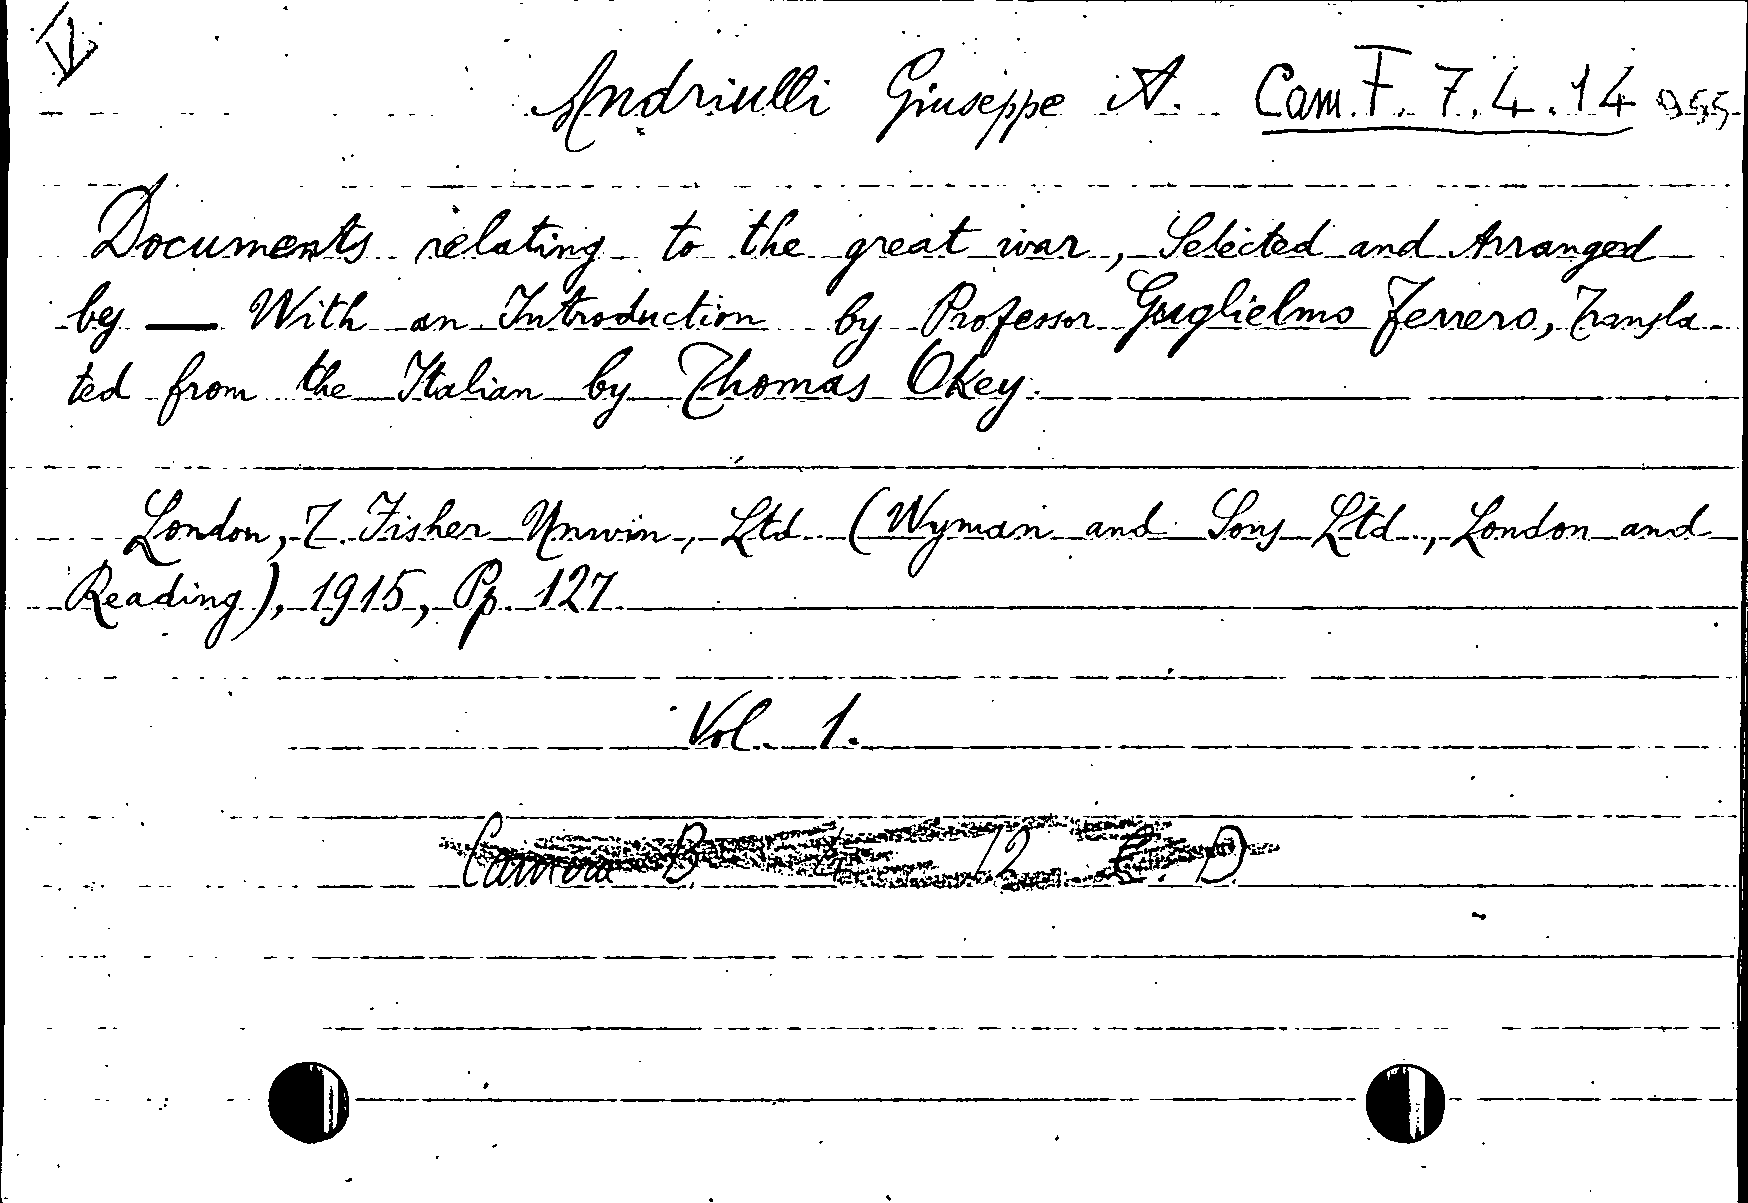 Andriulli Giuseppe A. Cam. F. 7.4.14
Documents relating to the great war, Selected and Arranged
by — With an Introduction by Professor Guglielmo Ferrero, Transla-
ted from the Italian by Thomas Okey.
London, T. Fisher Unwin, Ltd (Wyman and Sons Ltd, London and
Reading), 1915, Pp. 127
Vol. 1.
Camera B 12 D